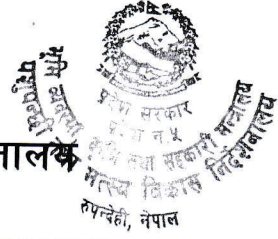 प्रदेश सरकार
प्रदेश न.५
भूमि व्यवस्था कृषि तथा सहकारी मन्त्रालय
मत्स्य विकास निर्देशनालय
नालय
रुपन्देही, नेपाल